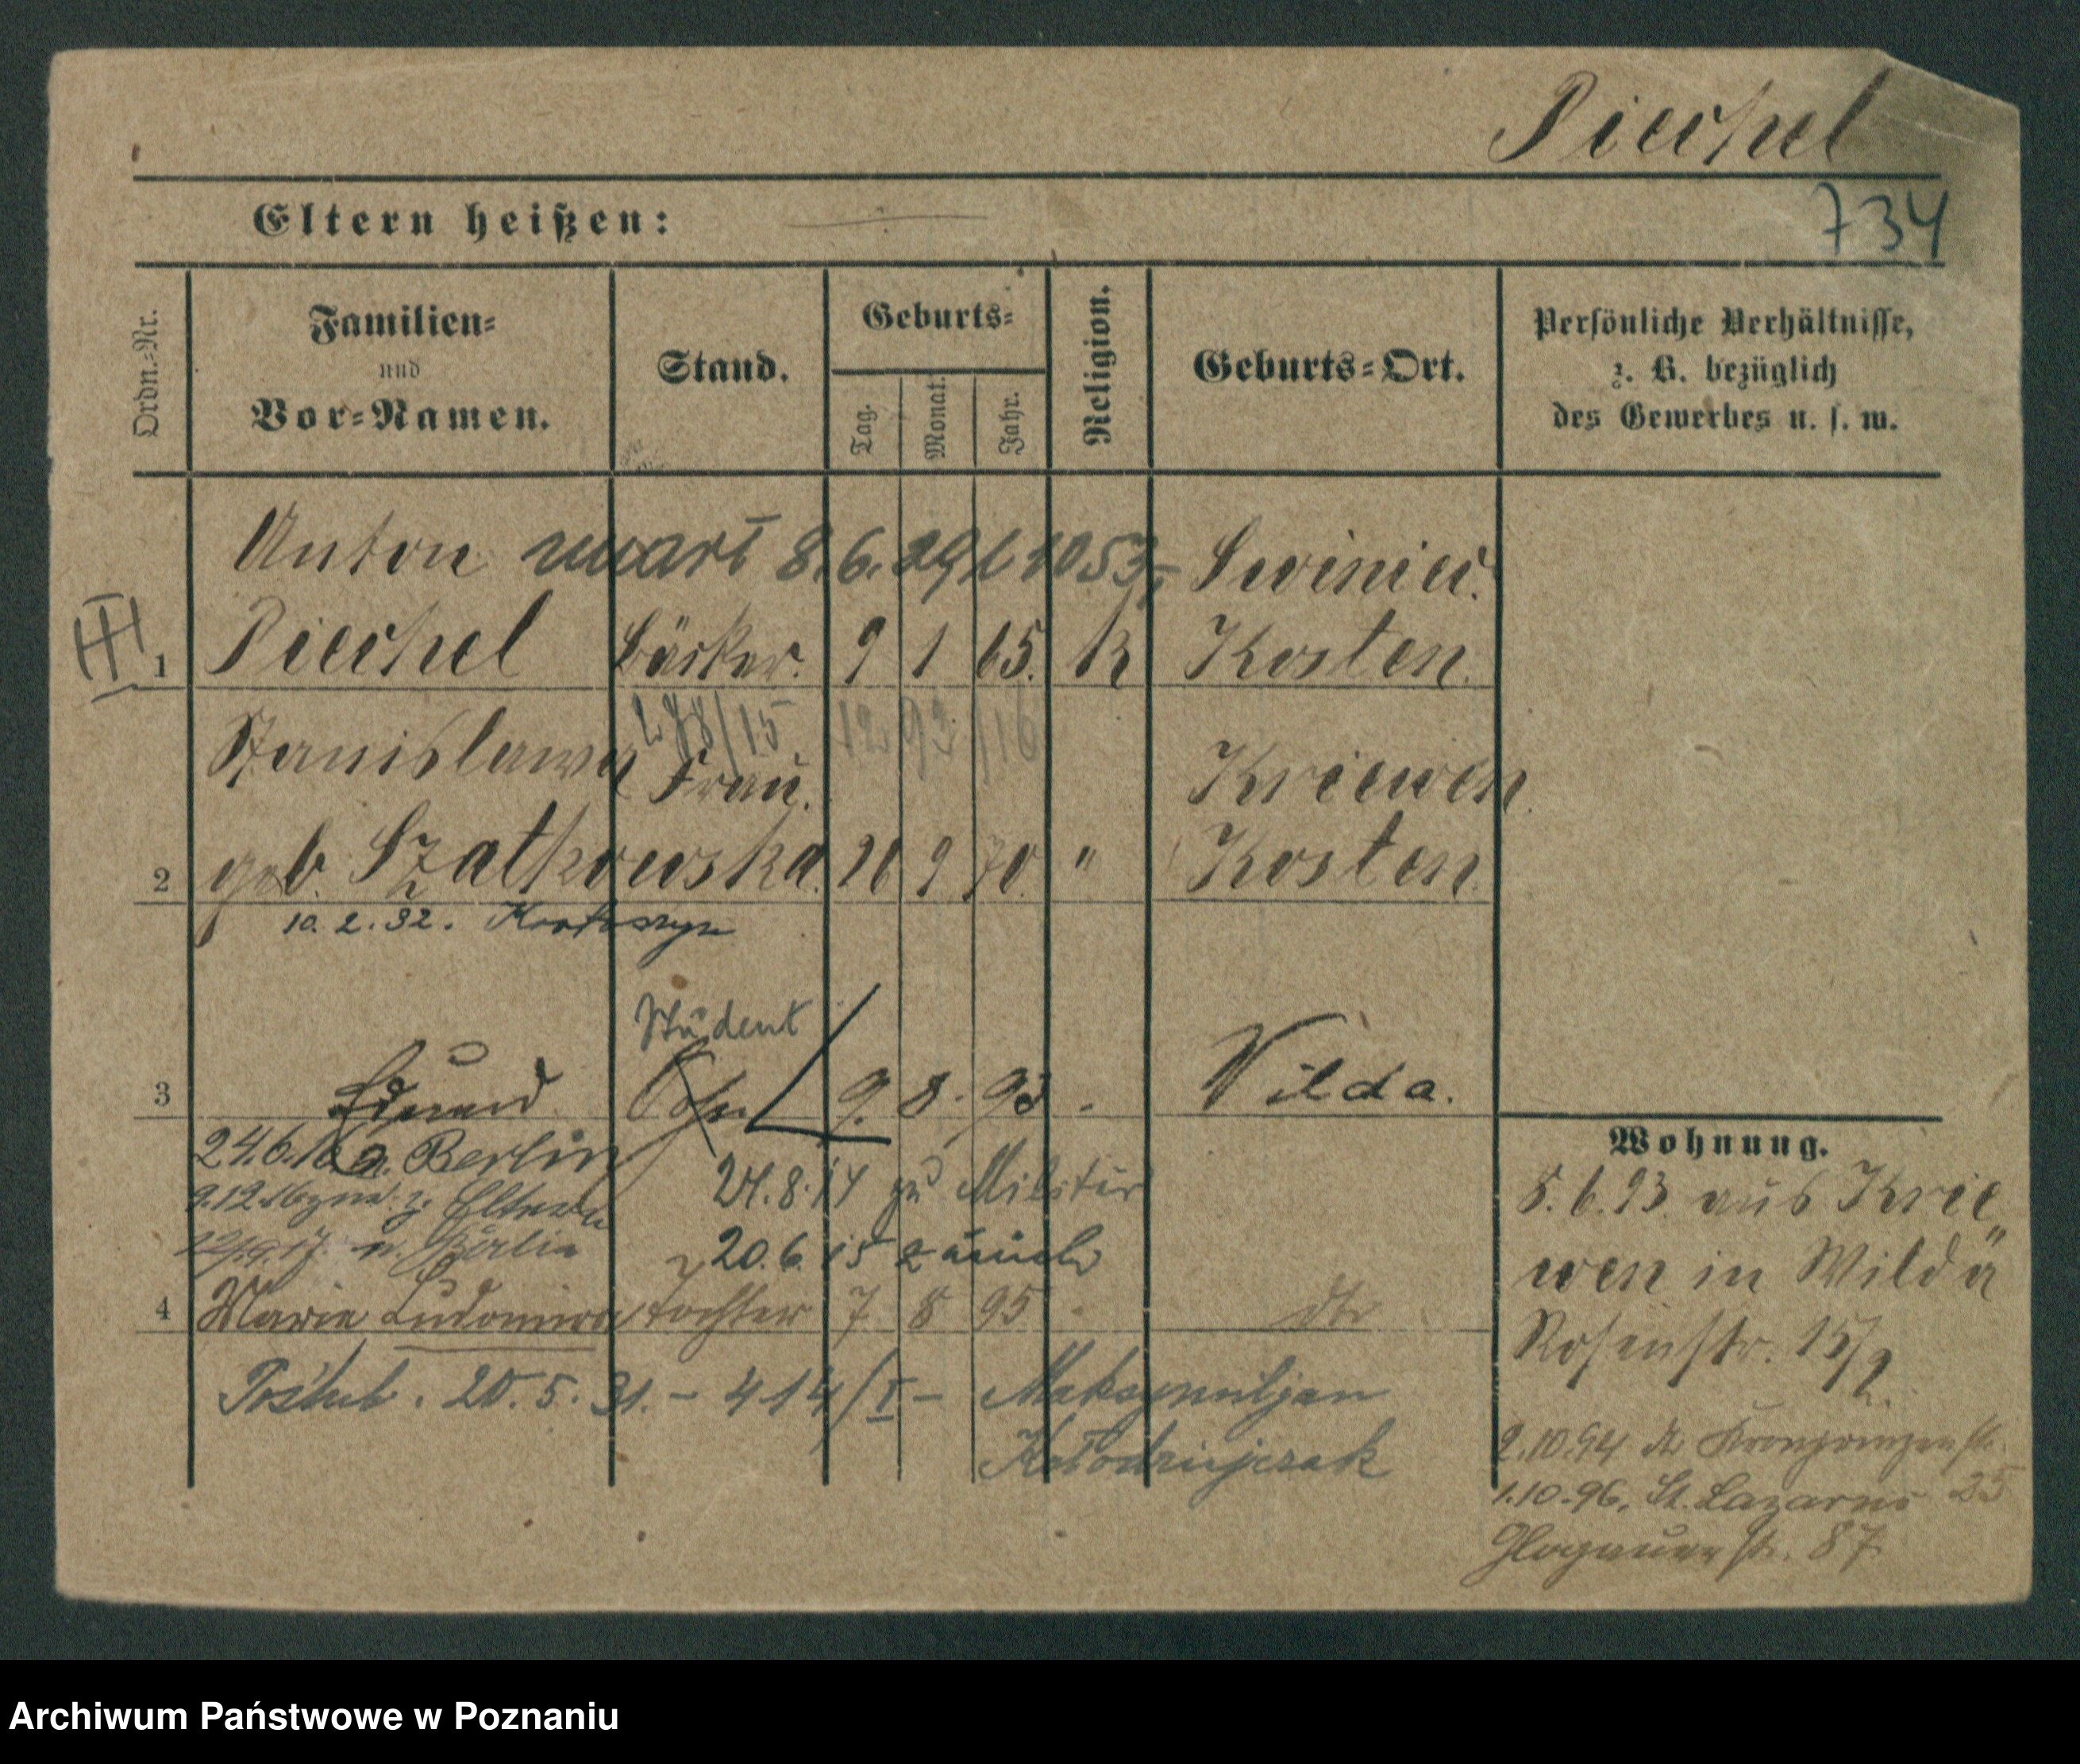 Piechel
734
Eltern heißen:
Ordn.-Nr.
Familien-
und
Vor-Namen.
Stand.
Geburts-
Tag.
Monat.
Jahr.
Religion.
Geburts-Ort.
Persönliche Verhältnisse,
z. B. bezüglich
des Gewerbes u. s. w.
Anton zmarł 8.6.29 1053
Swiniec.
III
1 Piechel Bäcker. 9 1 65. K Kosten.
278/15 1292/16
Stanislawa Frau. Kriewen
2 geb. Szatkowska. 26 9 70. " Kosten.
10.2.32.
Student
3 Eduard Sohn 9. 8. 93 Wilda.
24.6.16 n. Berlin
24.8.14 zu Militär
9.12.16 z. Eltern
17. n. Berlin
20.6.15 zurück
4 Maria Ludomira Tochter 7 8 95 dto
Poślub. 20.5.31. – 414/I – Maksymiljan
Kołodziejczak
Wohnung.
8.6.93 aus Krie
wen in Wilda
Rosenstr. 15/2.
2.10.94 do Kronprinzenstr.
25
1.10.96. St. Lazarus
Glogauerstr. 87
Archiwum Państwowe w Poznaniu